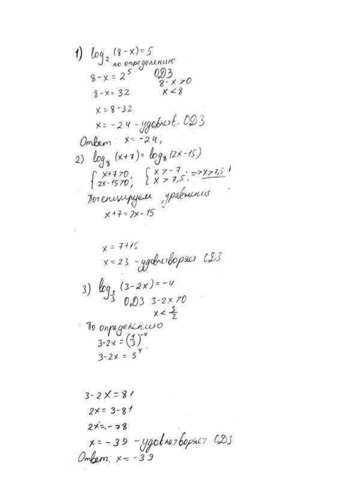 1) log₂ (8-x) = 5
по определению
8-x = 2⁵ ОДЗ
8-x>0
8-x = 32 x<8
x = 8-32
x = -24 - удовлетв. ОДЗ
Ответ: x = -24.
2) log₈(x+7) = log₈(2x-15)
{x+7>0; {x>-7
{2x-15>0; {x>7,5 ; => x>7,5
Потенцируем уравнения
x+7=2x-15
x = 7+15
x = 23 - удовлетворяет ОДЗ
3) log (3-2x) = -4
ОДЗ 3-2x>0
x < 3/2
По определению
3-2x = (1/3)⁻⁴
3-2x = 3⁴
3-2x = 81
2x = 3-81
2x = -78
x = -39 - удовлетворяет ОДЗ
Ответ: x = -39